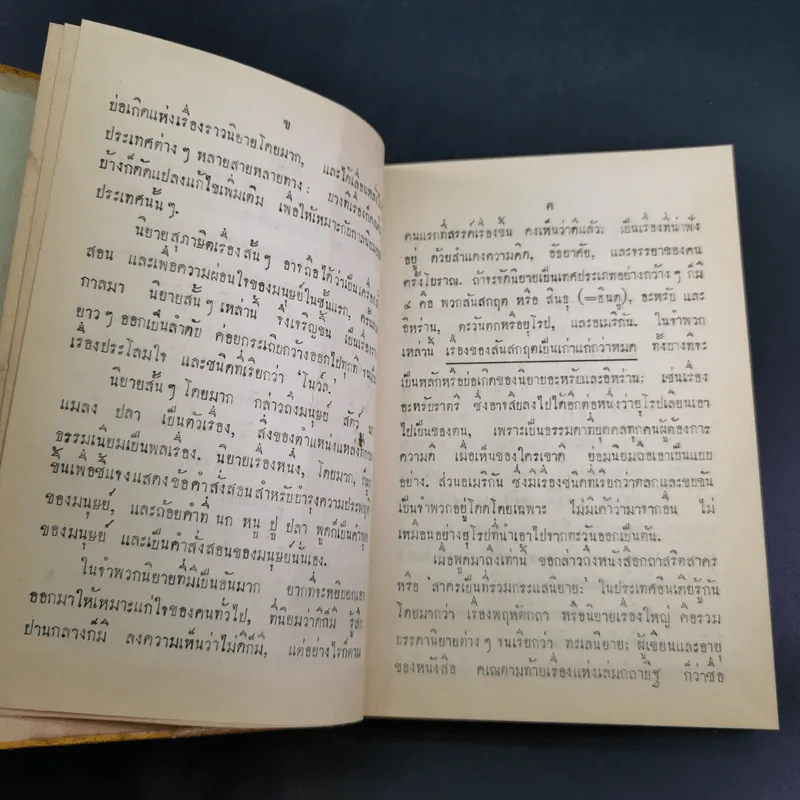 ข
ย่อเกิดแห่งเรื่องราวนิยายโดยมาก, และได้เลื่อน
ประเทศต่าง ๆ หลายสายหลายทาง: บางทีเรื่องก็
บ้างก็ดัดแปลงแก้ไขเพิ่มเติม เพื่อให้เหมาะกับกาล
ประเทศนั้น ๆ.
นิยายสุภาษิตเรื่องสั้น ๆ อาจถือได้ว่าเป็นเครื่อง
สอน และเพื่อความผ่อนใจของมนุษย์ในชั้นแรก, ครั้น
กาลมา นิยายสั้น ๆ เหล่านี้ จึ่งเจริญขึ้น เป็นเรื่อง
ยาว ๆ ออกเป็นลำดับ ค่อยกระเถิบกว้างออกไปทุกที
เรื่องประโลมใจ และชนิดที่เรียกว่า 'โนวัล'
นิยายสั้น ๆ โดยมาก กล่าวถึงมนุษย์ สัตว์ นก
แมลง ปลา เป็นตัวเรื่อง, สิ่งของตำแหน่งแหล่ง
ธรรมเนียมเป็นพลเรื่อง. นิยายเรื่องหนึ่ง, โดยมาก,
ขึ้นเพื่อชี้แจงแสดงข้อคำสั่งสอนสำหรับบำรุงความประพฤติ
ของมนุษย์, และถ้อยคำที่ นก หนู ปู ปลา พูดก็เป็นคำพูด
ของมนุษย์ และเป็นคำสั่งสอนของมนุษย์นั่นเอง.
ในจำพวกนิยายที่มีเป็นอันมาก ยากที่จะหยิบยกเอา
ออกมาให้เหมาะแก่ใจของคนทั่วไป, ที่นิยมว่าดีก็มี รู้สึก
ปานกลางก็มี ลงความเห็นว่าไม่ดีก็มี, แต่อย่างไรก็ตาม
ค
คนแรกที่สรรค์เรื่องขึ้น คงเห็นว่าดีแล้ว; เป็นเรื่องที่น่าฟัง
อยู่ ด้วยสำแดงความคิด, อัธยาศัย, และจรรยาของคน
ครั้งโบราณ. ถ้าจะจัดนิยายเป็นเทศประเภทอย่างกว้าง ๆ ก็มี
๔ คือ พวกสันสกฤต หรือ สินธุ (=ฮินดู), อะหรับ และ
อิหร่าน, ตะวันตกหรือยุโรป, และอเมริกัน. ในจำพวก
เหล่านี้ เรื่องของสันสกฤตเป็นเก่าแก่กว่าหมด ทั้งบางทีจะ
เป็นหลักหรือบ่อเกิดของนิยายอะหรับและอิหร่าน; เช่นเรื่อง
อะหรับราตรี ซึ่งอาจสืบลงไปได้อีกต่อหนึ่งว่ายุโรปเลียนเอา
ไปเป็นของตน, เพราะเป็นธรรมดาที่บุคคลทุกคนผู้ต้องการ
ความดี เมื่อเห็นของใครเขาดี ย่อมนิยมถือเอาเป็นแบบ
อย่าง. ส่วนอเมริกัน ซึ่งมีเรื่องชนิดที่เรียกว่าตลกและขบขัน
เป็นจำพวกอยู่โดดโดยเฉพาะ ไม่มีเค้าว่ามาจากอื่น ไม่
เหมือนอย่างยุโรปที่นำเอาไปจากตะวันออกเป็นต้น.
เมื่อพูดมาถึงเท่านี้ ขอกล่าวถึงหนังสือกถาสริตสาคร
หรือ 'สาครเป็นที่รวมกระแสนิยาย:' ในประเทศอินเดียรู้กัน
โดยมากว่า เรื่องพฤหัตกถา หรือนิยายเรื่องใหญ่ คือรวม
บรรดานิยายต่าง ๆ จนเรียกว่า ทะเลนิยาย; ผู้เขียนและอายุ
ของหนังสือ คเณตามท้ายเรื่องแห่งเล่มกถาปีฐ ก็ว่าชื่อ